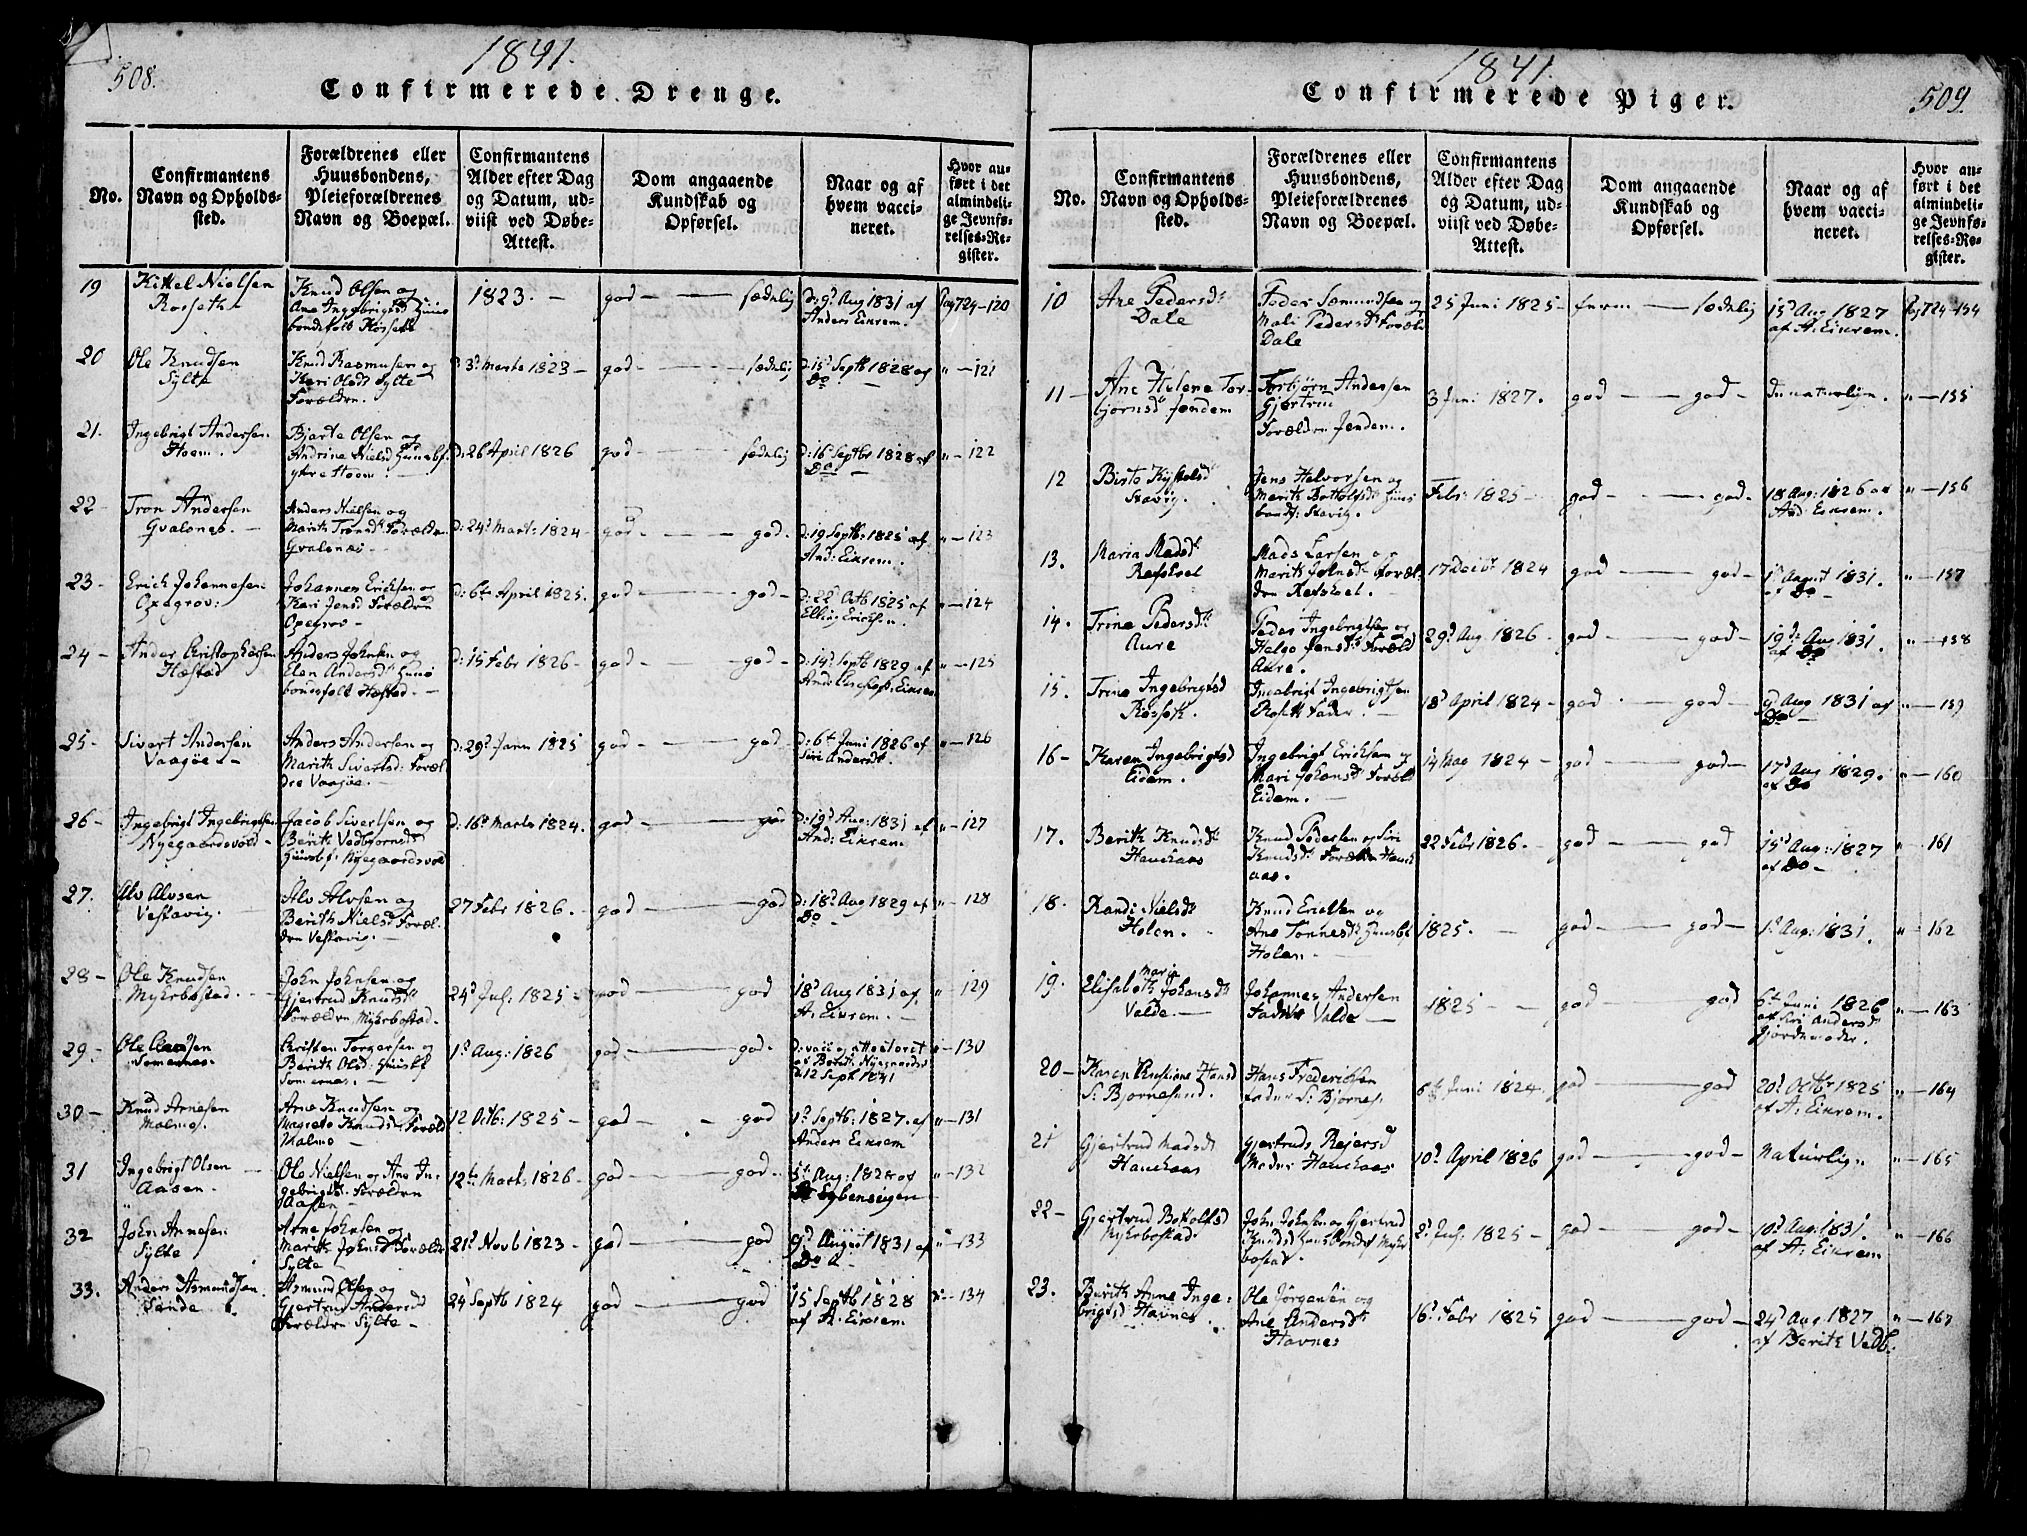 508.
1841.
Confirmerede Drenge.
No.
Confirmantens
Navn og Opholds-
sted.
Forældrenes eller
Huusbondens,
Pleieforældrenes
Navn og Boepæl.
Confirmantens
Alder efter Dag
og Datum, ud-
viist ved Døbe-
Attest.
Dom angaaende
Kundskab og
Opførsel.
Naar og af
hvem vacci-
neret.
Hvor an-
ført i det
almindeli-
ge Jevnfø-
relses-Re-
gister.
19
Kittel Nielsen
Rosseth
Knud Olsen og
Ane Ingebrigtsd Huus
bondsfolk Rosseth
1823. -
god - sædelig
d: 9d Aug 1831 af
Anders Eikrem.
Pag 724-120
20
Ole Knudsen
Sylte
Knud Rasmusen og
Kari Olsd: Sylte
Forældre.
3d Marts 1823 -
god - sædelig
d: 15d Septb 1828 af
Do -
" - 121
21.
Ingebrigt Andersen
Hoem.
Bjarte Olsen og
Andrine Nielsd Huusbf.
ytre Hoem. -
d: 26 April 1826
god - sædelig
d: 16d Septbr 1828 af
Do -
" - 122
22 -
Tron Andersen
Gvalsnes. -
Anders Nielsen og
Marith Tronds. Forældre
Gvalsnæs -
d: 24d Marts 1824 -
god - god.
d: 19 Septb: 1825 af
And: Eikrem.
" - 123
23 -
Erich Johannesen
Opdgrov:
Johannes Ericksen og
Kari Jensd Forældre
Opegrov -
d: 6te April 1825.
god - god -
d: 22d Octb 1825 af
Elling Ericksen.
" - 124
24 -
Ander Christophersen
Hæstad
Anders Johnsen og
Elen Andersd: Huus
bondsfolk Hæstad. -
d: 15 Febr 1826 -
god - god -
d: 14d Septb 1829 af
And: Eikrem
" - 125
25 -
Sivert Andersen
Vaagøe -
Anders Andersen og
Marith Sivertsd: Foræl-
dre Vaagøe. -
d: 29d Janu 1825
god - god -
d: 6te Juni 1826 af
Siri Andersd.
" - 126
26 -
Ingebrigt Ingebrigtsen
Nyegaardsvold -
Jacob Sivertsen og
Berith Vedbjornsd
Huusbf: Nyegaardsvold
d: 16d Marts 1824.
god - god
d: 19d Aug: 1831 af
And: Eikrem.
" - 127
27.
Alv Alvsen
Vestavig. -
Alv Alvsen og
Berith Nielsd Foræl-
dre Vestavig. -
27 Febr 1826. -
god - god
d: 18d Aug 1829 af
Do -
" - 128
28 -
Ole Knudsen
Myhrbostad. -
John Johnsen og
Gjertrud Knudsd
Forældre, Myhrbostad. -
24d Jul: 1825 -
god - god
18d Aug 1831 af
A: Eikrem. -
" - 129
29 -
Ole
Sommernes.
Christen Torgersen og
Berith Olsd: Huusbf
Sommernes. -
1d Aug: 1826
god - god -
12 Septb 1841
" - 130
30 -
Knud Arnesen
Malmoe.
Arne Knudsen og
Magrete Knudsd Foræld
Malmo -
12 Octb: 1825 -
god - god
1d Septb: 1827. af
Anders Eikrem
" - 131
31
Ingebrigt Olsen -
Aasen.
Ole Nielsen og Ane In-
gebrigtsd. Forældre
Aasen -
12te Marts 1826 -
god - god -
5te Aug: 1826 af
" - 132
32
John Arnesen
Sylte
Arne Johnsen og
Marith Johnsd Forældre
Sylte -
21d Novb 1823 -
god - god
9d August 1831 af
Do -
" - 133
33.
Anders Asmundsen
Sande
Asmund Olsen og
Gjertrud Andersd
Forældre Sylte -
24d Septb 1824
god - god
15 Septb 1828
af A. Eikrem.
" - 134
1841.
509.
Confirmerede Piger.
No.
Confirmantens
Navn og Opholds-
sted.
Forældrenes eller
Huusbondens,
Pleieforældrenes
Navn og Boepæl.
Confirmantens
Alder efter Dag
og Datum, ud-
viist ved Døbe-
Attest.
Dom angaaende
Kundskab og
Opførsel.
Naar og af
hvem vacci-
neret.
Hvor an-
ført i det
almindeli-
ge Jevnfø-
relses-Re-
gister.
10
Ane Pedersd.
Dale
Peder Semundsen og
Mali Pedersd Foræld
Dale
25 Juni 1825 -
- sædelig
15d Aug 1827
af A. Eikrem.
Pag 724-154
11 -
Ane Helene Tor-
bjornsd Jendem
Torbjørn Andersen
Gjertrud
Forældre Jendem.
3 Juni 1827.
god - god -
De naturlige.
" - 155
12
Birte Kystelsd
Stavig.
Jens Halvorsen og
Marith Botholfsd Huus
bondf: Stavig.
Febr: 1825 -
god - god -
18 Aug: 1826 af
And Eikrem.
" - 156
13.
Maria Madsd.
Refshol
Mads Larsen og
Marith Johnsd Foræl-
dre Refshoel.
17 Decbr 1824
god - god -
1d August 1831.
af Do -
" - 157
14.
Trine Pedersd.
Aure
Peder Ingebrigtsen og
Helge Jensd. Foræld
Aure.
29d Aug 1826.
god - god -
19d Aug 1831.
af Do
" - 158
15.
Trine Ingebrigtsd
Rosseth.
Ingebrigt Ingebrigtsen
Rosseth Fader. -
18d April 1824 -
god - god -
9d Aug 1831 af
Do -
" - 159
16 -
Karen Ingebrigtsd
Eidem.
Ingebrigt Ericksen og
Mari Johansd. Foræld
Eidem. -
14 May 1824 -
god - god -
17d Aug 1829.
af Do
" - 160
17.
Berith Knudsd.
Hauchaas
Knud Pedersen og Siri
Knudsd. Forældre Hauch
aas.
22 Febr 1826. -
god - god
15d Aug: 1827
af Do -
" - 161
18.
Randi Nielsd.
Holen.
Knud Ericksen og
Ane Tonnesd. Huusbf
Holen -
1825. -
god - god -
1d Aug: 1831.
" - 162
19.
Elisabeth Maria Johansd.
Valde. -
Johannes Andersen
Fader Valde -
1825 -
god - god
6te Juni 1826
af Siri Andersd.
Gjordemoder.
" - 163
20 -
Karen Christiane Hansd
S: Bjornesund.
Hans Frederiksen
Fader S: Bjornes.
6te Juni 1824.
god - god
20d Octbr 1825
af A: Eikrem.
" - 164
21
Gjertrud Madsd.
Hauchaas
Gjertrud Rejersd
Moder Hauchaas
10d April 1826
god - god -
Naturlig.
" - 165
22 -
Gjertrud Botolfsd
Myhrbostad.
John Johnsen og Gjertrud
Knudsd Huusbondsf Myhr
bostad.
2d Jul: 1825 -
god - god -
10d Aug: 1831.
af A: Eikrem
" - 166
23.
Berith Anne Inge-
brigtsd: Havnes.
Ole Jørgensen og
Ane Andersd.
Havnes
16d Febr 1825
god - god -
24d Aug. 1827
af Berith Vedb.
" - 167